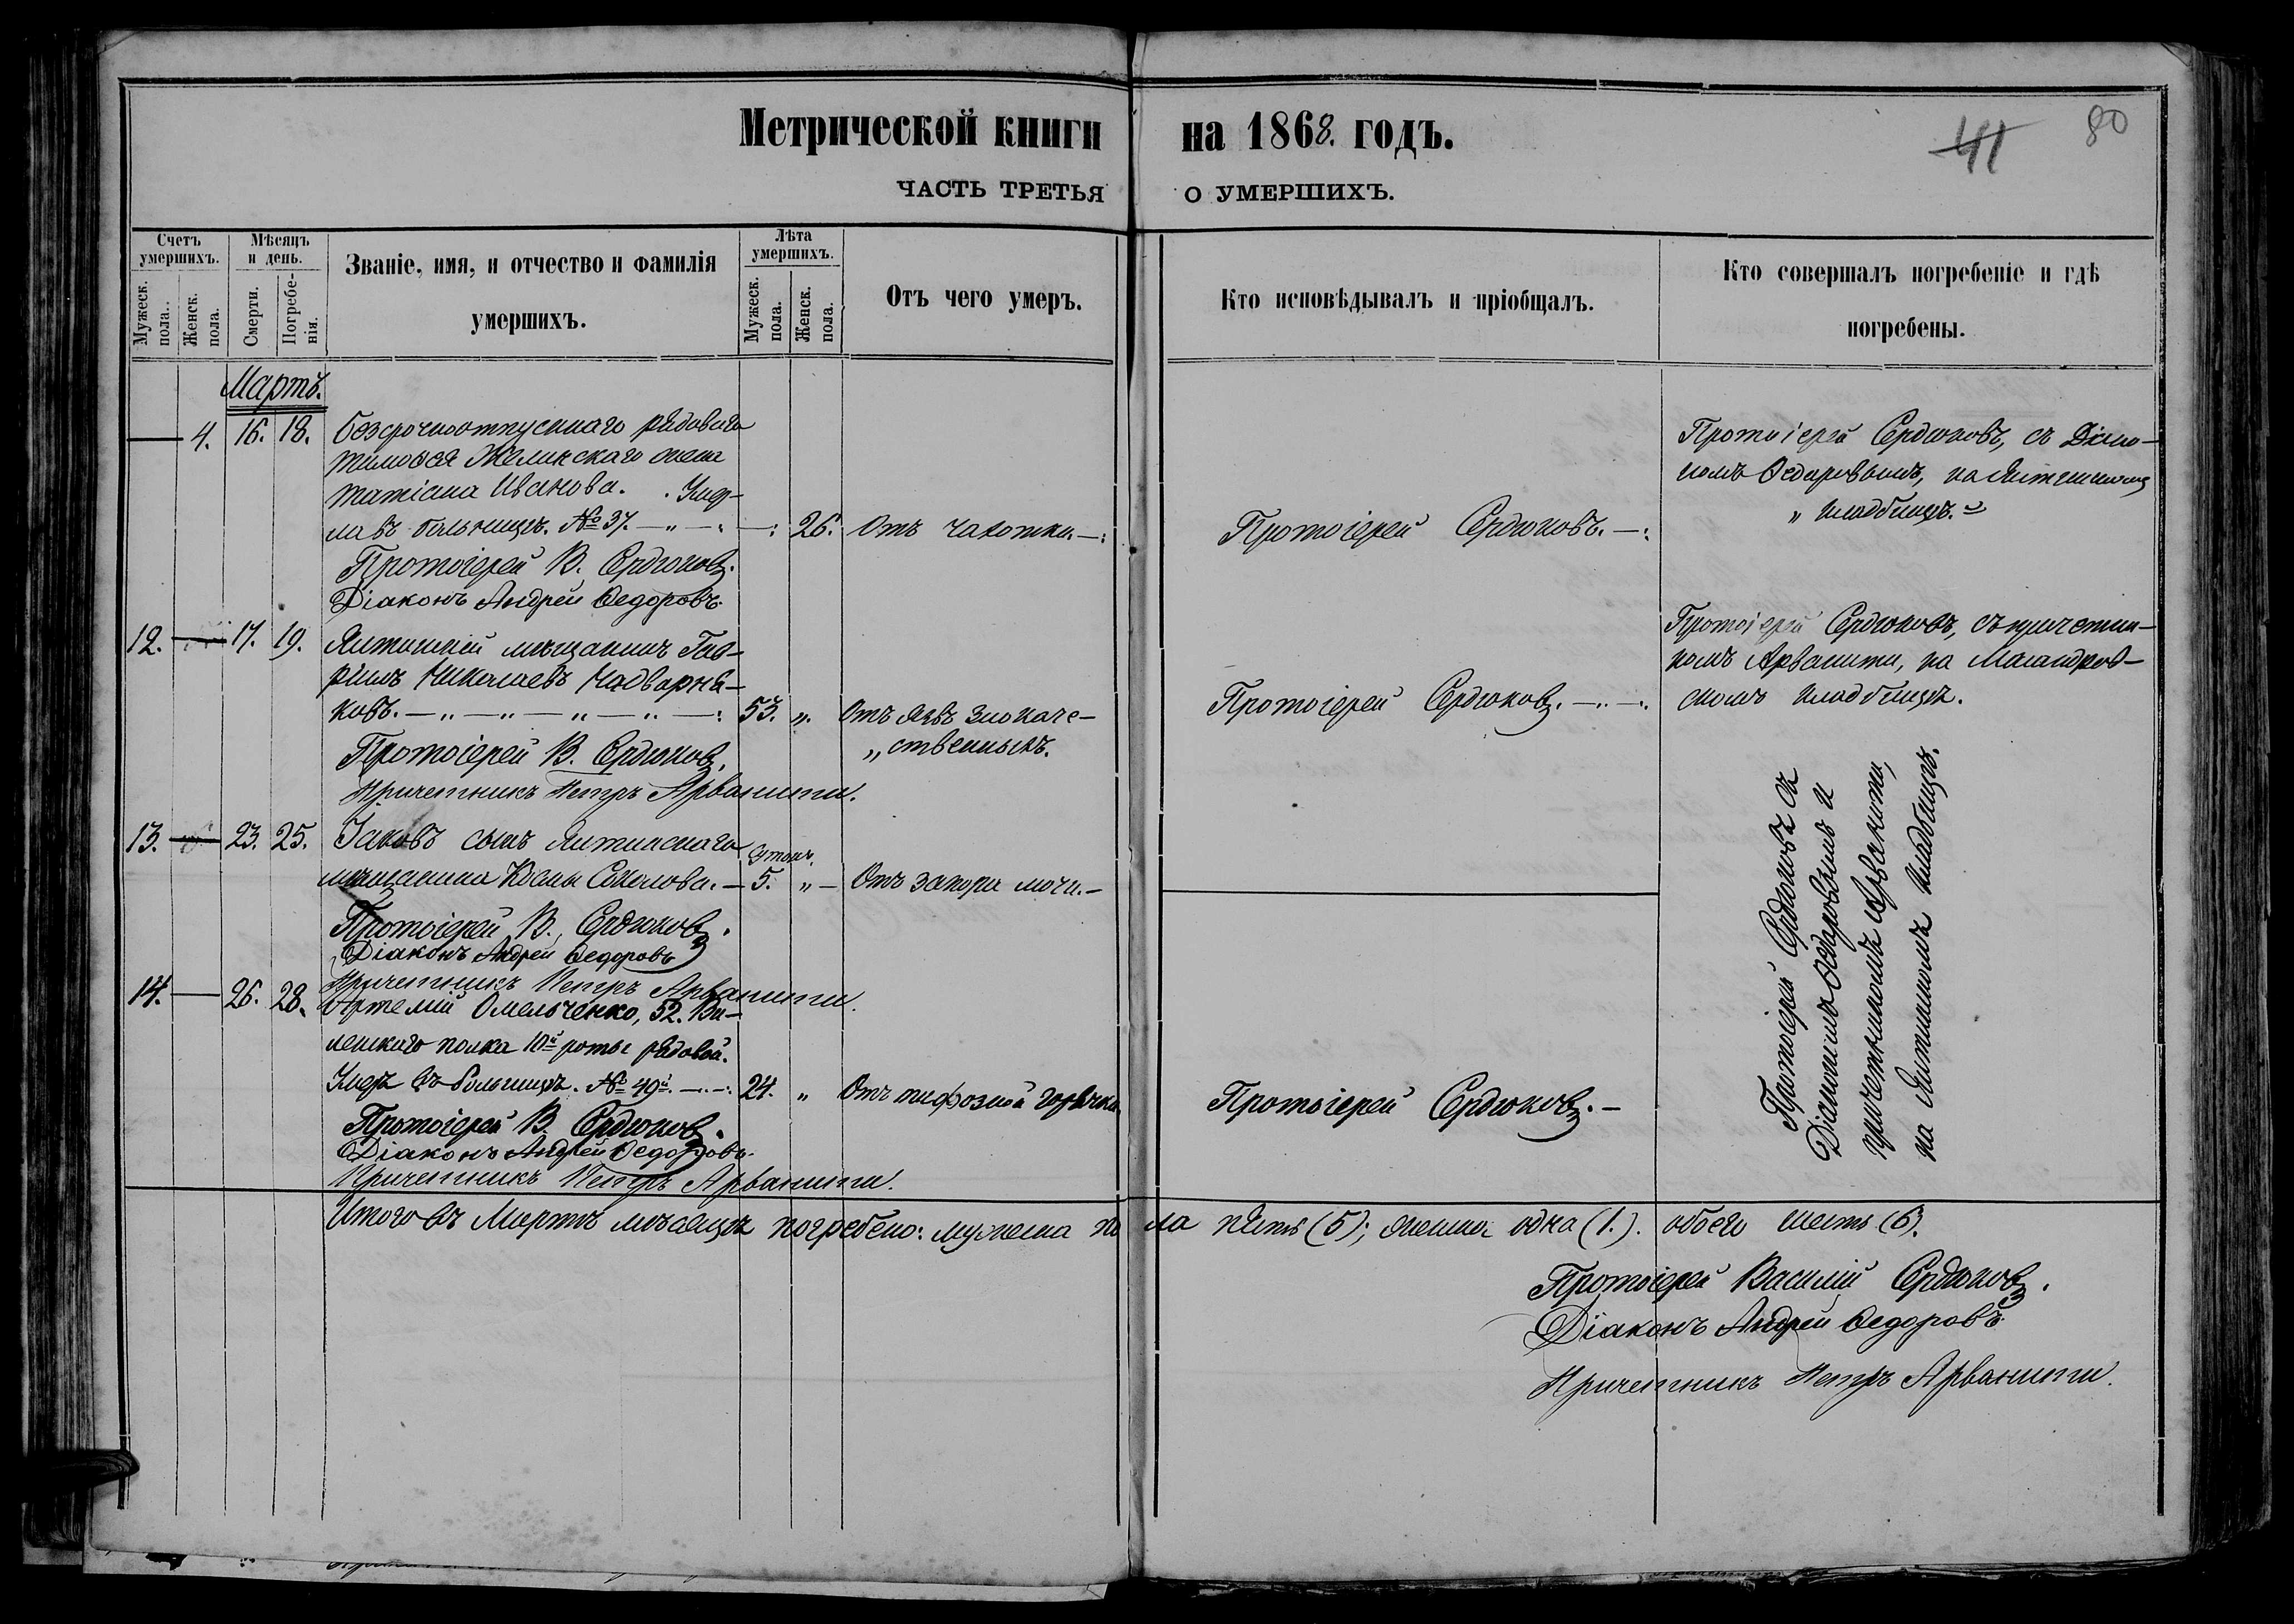 Метрической книги на 1868. годъ.
41 80
ЧАСТЬ ТРЕТЬЯ О УМЕРШИХЪ.
Счетъ умершихъ.
Мужеск. пола.
Женск. пола.
Мѣсяцъ и день.
Смерти.
Погребенія.
Званіе, имя, и отчество и фамилія
умершихъ.
Лѣта умершихъ.
Мужеск. пола.
Женск. пола.
Отъ чего умеръ.
Кто исповѣдывалъ и пріобщалъ.
Кто совершалъ погребеніе и гдѣ
погребены.
Мартъ.
4. 16. 18. Безсрочноотпускнаго рядоваго
Тимофея Желинскаго жена
Татіана Иванова. Умер-
ла въ больницѣ. № 37. 26. Отъ чахотки.
Протоіерей В. Сердюковъ.
Діаконъ Андрей Ѳедоровъ.
Протоіерей Сердюковъ.
Протоіерей Сердюковъ, съ Діако-
номъ Ѳедоровымъ, на Ялтинскомъ
„ кладбищѣ.
12. 17. 19. Ялтинскій мѣщанинъ Гав-
ріилъ Николаевъ Надварня-
ковъ. 53. „ Отъ язвъ злокаче-
„ ственныхъ.
Протоіерей В. Сердюковъ.
Причетникъ Петръ Арванити.
Протоіерей Сердюковъ.
Протоіерей Сердюковъ, съ причетни-
комъ Арванити, на Масандров-
скомъ кладбищѣ.
13. 23. 25. Іаковъ сынъ Ялтинскаго
мѣщанина Космы Соколова. 5. „ Отъ запора мочи.
Протоіерей В. Сердюковъ.
Діаконъ Андрей Ѳедоровъ
Причетникъ Петръ Арванити.
14. 26. 28. Артемій Омельченко, 52. Ви-
ленскаго полка 10й роты рядовой.
Умеръ въ больницѣ. № 49й. 24. „ Отъ тифозной горячки
Протоіерей В. Сердюковъ.
Діаконъ Андрей Ѳедоровъ.
Причетникъ Петръ Арванити.
Протоіерей Сердюковъ.
Протоіерей Сердюковъ съ
Діакономъ Ѳедоровымъ и
причетникомъ Арванити,
на Ялтинскомъ кладбищѣ.
Итого въ Мартѣ мѣсяцѣ погребено: мужеска пола пять (5); женска одна (1.). обоего шесть (6).
Протоіерей Василій Сердюковъ.
Діаконъ Андрей Ѳедоровъ.
Причетникъ Петръ Арванити.